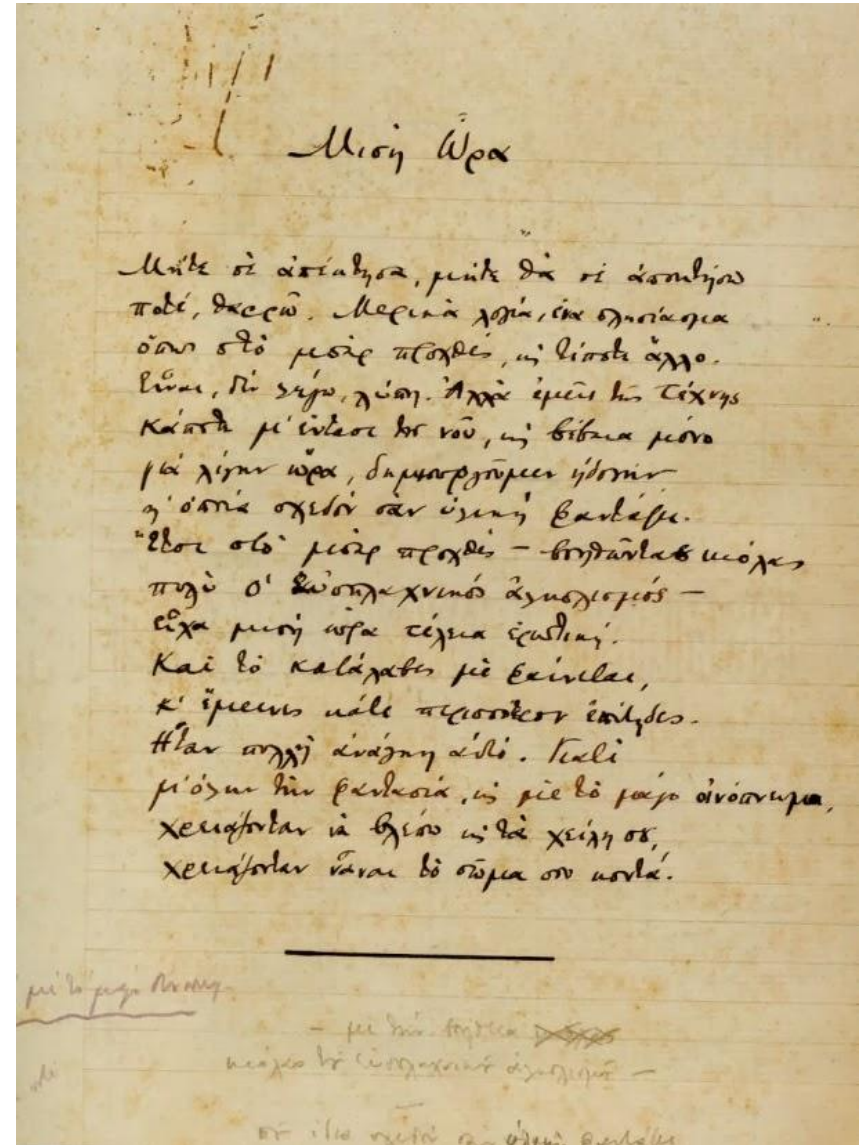 Μισή Ὥρα
Μήτε σὲ ἀπέκτησα, μήτε θὰ σὲ ἀποκτήσω
ποτέ, θαρρῶ. Μερικὰ λόγια, ἕνα πλησίασμα
ὅπως στὸ μπὰρ προχθές, κι τίποτε ἄλλο.
Εἶναι, δὲν λέγω, λύπη. Ἀλλὰ ἐμεῖς τῆς Τέχνης
κάποτε μ' ἔντασι τοῦ νοῦ, κι βέβαια μόνο
γιὰ λίγην ὥρα, δημιουργοῦμεν ἡδονὴν
ἡ ὁποία σχεδὸν σὰν ὑλικὴ φαντάζει.
Ἔτσι στὸ μπὰρ προχθές — βοηθώντας κιόλας
πολὺ ὁ εὐσπλαχνικὸς ἀλκολισμός —
εἶχα μισὴ ὥρα τέλεια ἐρωτική.
Καὶ τὸ κατάλαβες μὲ φαίνεται,
κ' ἔμεινες κάτι περισσότερον ἐπίτηδες.
Ἦταν πολλὴ ἀνάγκη αὐτό. Γιατὶ
μ' ὅλην τὴν φαντασία, κι μὲ τὸ μάγο οἰνόπνευμα,
χρειάζονταν νὰ βλέπω κι τὰ χείλη σου,
χρειάζονταν νἆναι τὸ σῶμα σου κοντά.
μὲ τὸ μάγο
— μὲ τὴν βοήθεια
κιόλας τοῦ εὐσπλαχνικοῦ ἀλκολισμοῦ —
σχεδὸν σὰν ὑλικὴ φαντάζει